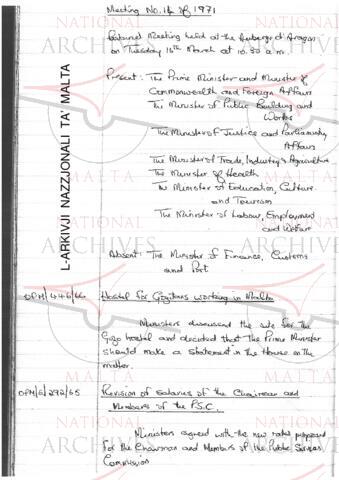 Meeting No. 14 of 1971
Cabinet Meeting held at the Auberge d'Aragon
on Tuesday 16th March at 10.30 a.m.
Present: The Prime Minister and Minister of
Commonwealth and Foreign Affairs
The Minister of Public Building and
Works
The Minister of Justice and Parliamentary
Affairs
The Minister of Trade, Industry & Agriculture
The Minister of Health
The Minister of Education, Culture
and Tourism
The Minister of Labour, Employment
and Welfare
Absent: The Minister of Finance, Customs
and Port
OPM/446/66 Hostel for Gozitans working in Malta
Ministers discussed the site for the
Gozo hostel and decided that the Prime Minister
should make a statement in the House on the
matter.
OPM/E/292/65 Revision of salaries of the Chairman and
Members of the P.S.C.
Ministers agreed with the new rates proposed
for the Chairman and Members of the Public Service
Commission
L-ARKIVJI NAZZJONALI TA' MALTA
NATIONAL
ARCHIVES
MALTA